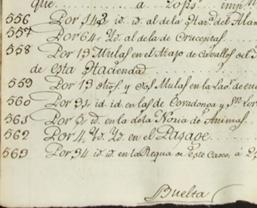 que a 20 ps. imp
556 Por 143 id. id. al de la
557 Por 64 Yd. al de la de Crucentas
558 Por 13 Mulas en el Atajo de Cavallos del
de esta Hacienda
559 Por 13 Mulas en la de
560 Por 91 id. id. en las de Covadonga y
561 Por 5 id. en la de la Noria de Animas
562 Por 4 Yd. Yd. en el Pasage
563 Por 94 id. id. en la Regua de este Casco á
Buelta